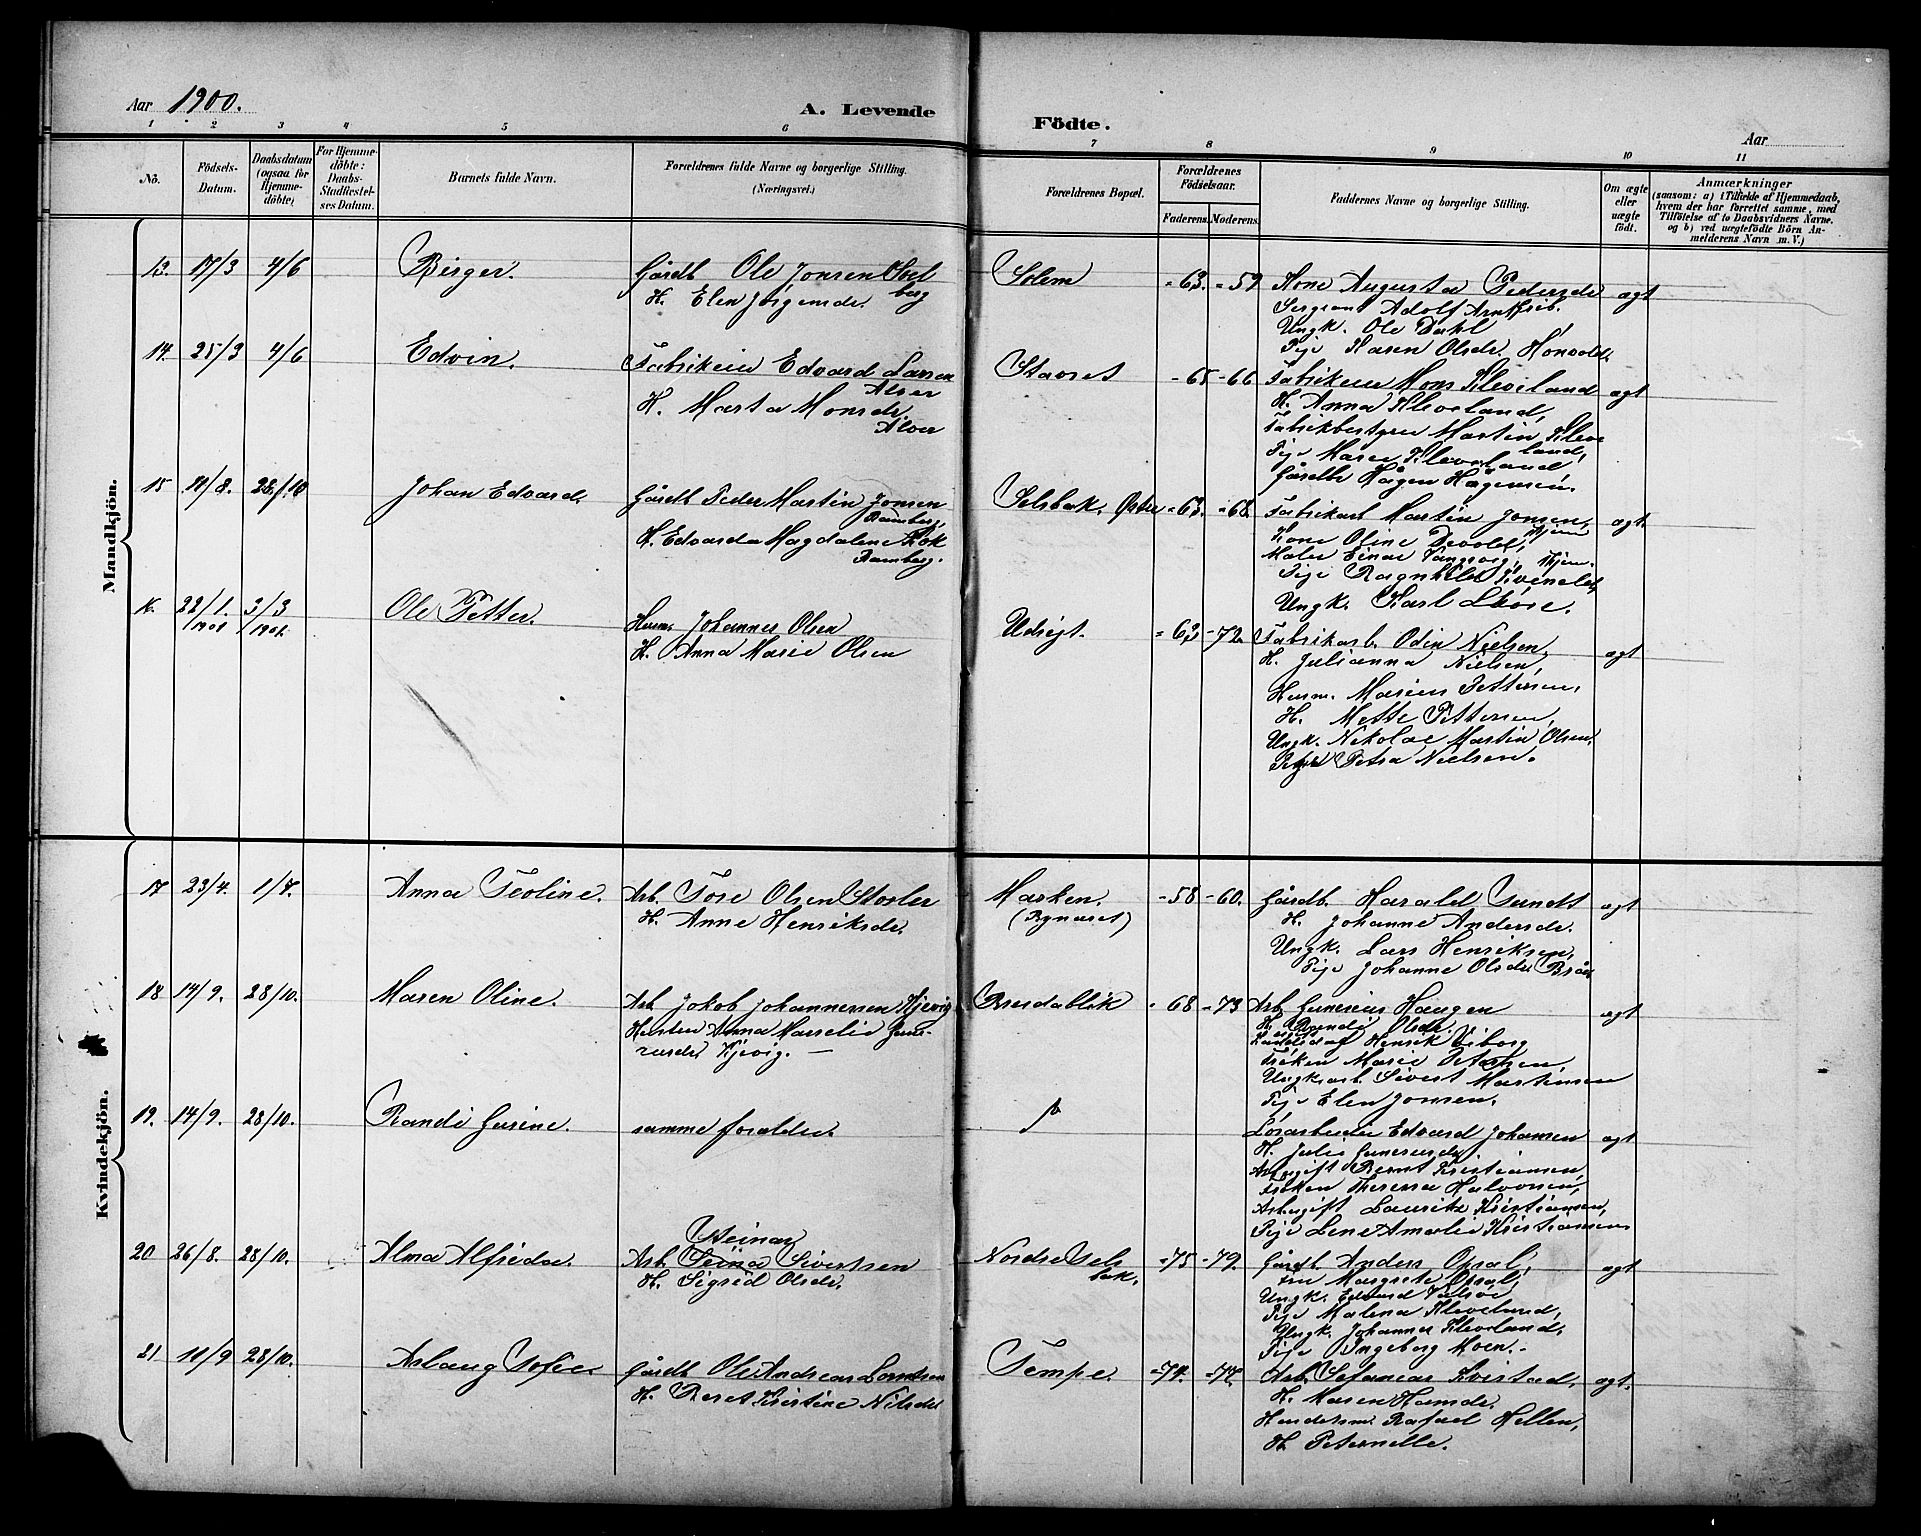 Aar 1900.
A. Levende
Födte.
Aar
1 2 3 4 5 6 7 8 9 10 11
No.
Födsels-
Datum.
Daabsdatum
(ogsaa for
Hjemme-
döbte)
For Hjemme-
döbte:
Daabs-
Stadfæstel-
ses Datum.
Barnets fulde Navn.
Forældrenes fulde Navne og borgerlige Stilling.
(Næringsvei.)
Forældrenes Bopæl.
Forældrenes
Födselsaar.
Faderens. Moderens.
Faddernes Navne og borgerlige Stilling.
Om ægte
eller
uægte
födt.
Anmærkninger
(saasom: a) i Tilfælde af Hjemmedaab,
hvem der har forrettet samme, med
Tilföielse af to Daabsvidners Navne.
og b) ved uægtefödte Börn An-
melderens Navn m. V.)
Mandkjön.
13. 17/3 4/6 Birger.
Gårdb. Ole Jonsen Sol
berg
H. Elen Jörgensdr.
Solem -63. -59
Kone Augusta Pedersdr
Sergeant Adolf Arntsen.
Ungk. Ole Dahl
Pige Karen Olsdr.
ægt
14. 25/3 4/6 Edvin.
Fabrikeier Edvard Larsen
Alver
H. Marta Monsdr.
Alver
Stavset -65 -66
Fabrikeier Mons Kleveland
H. Anna Kleveland,
Fabrikbestyrer Martin Kleve
land,
Pige Maren Kleveland
Gårdbr Hågen Hågensen.
ægt
15 11/8. 28/10 Johan Edvard.
Gårdb Peder Martin Jonsen
Ramberg,
H. Edvarda Magdalene Rok
Ramberg.
Selsbak. Östre -63. -68.
Fabrikarb Martin Jonsen,
Kone Oline Devold,
Maler Einar
Pige Ragnhild
Ungk. Karl
ægt
16. 22/1. 1901 3/3 1901 Ole Petter.
Husm. Johannes Olsen
H. Anna Marie Olsen
Udsigt. -63 -72.
Fabrikarb. Odin Nielsen,
H. Julianna Nielsen,
Husm. Marius Pettersen,
H. Mette Pettersen,
Ungk. Nikolai Martin Olsen,
Pige Petra Nielsen.
ægt
Kvindekjön.
17 23/4. 1/7. Anna Teoline.
Arb. Tore Olsen Storler
H. Anne Henriksdr.
Marken.
(Bynæset)
-58 -60.
Gårdb. Harald Sundt
H. Johanne Andersdr.
Ungk. Lars Henriksen,
Pige Johanne Olsdr
ægt
18 14/9. 28/10. Maren Oline.
Arb. Jokob Johannessen Kjevig
Hustru Anna Marselie Gune-
riusdr Kjevig. —
Brusdalbæk - 68 -73
Arb. Gunerius Haugen
H. Randi Olsdr.
Henrik Viborg
Fröken Marie
Ungkarl. Sivert Martinsen
Pige Elen Jonsen.
ægt
19. 14/9. 28/10. Randi Gurine.
samme foraldre.
Lörarbeider Edvard Johansen
H. Julie Guneriusdr
Arb. gift Bernt Kristiansen,
Fröken Theresa Halvorsen,
Arb. gift Lauritz Kristiansen,
Pige Lene Amalie Kristiansen
ægt
20 26/8. 28/10. Alma Alfrida.
Steinar
Arb. Seina Sivertsen
H. Sigrid Olsdr.
Nordre Sels
bak. -75 -79.
Gårdb. Anders Opsal,
fru Margrete Opsal,
Ungk. Edvard
Pige Malena Kleveland,
Ungk. Johannes Kleveland,
Pige Ingeborg Moen.
ægt
21 11/9 28/10. Aslaug Sofie.
Gårdb Ole Andreas Lorntsen
H. Beret Kristine Nilsdr
Tempe -74. -77.
Arb. Kvistad,
H. Maren Hansdr.
Rafael Hellen,
H. Peternelle.
ægt.